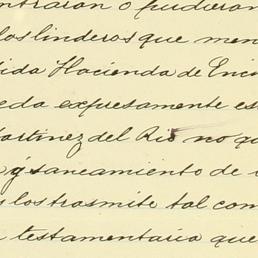 ntraran o pudieran
los linderos que men
ida Hacienda de Enci
eda expresamente es
artinez del Rio no qu
y saneamiento de
s los trasmite tal com
testamentaria que